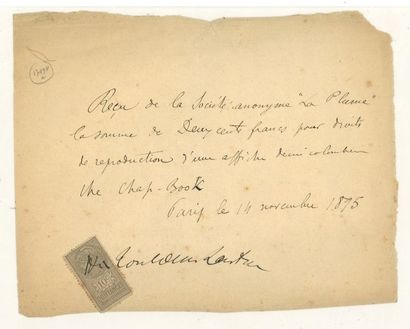 Reçu de la Société anonyme "La Plume"
la somme de Deux cents francs pour droits
de reproduction d'une affiche demi colombier
The Chap-Book
Paris le 14 novembre 1895
HdeToulouse Lautrec
10c